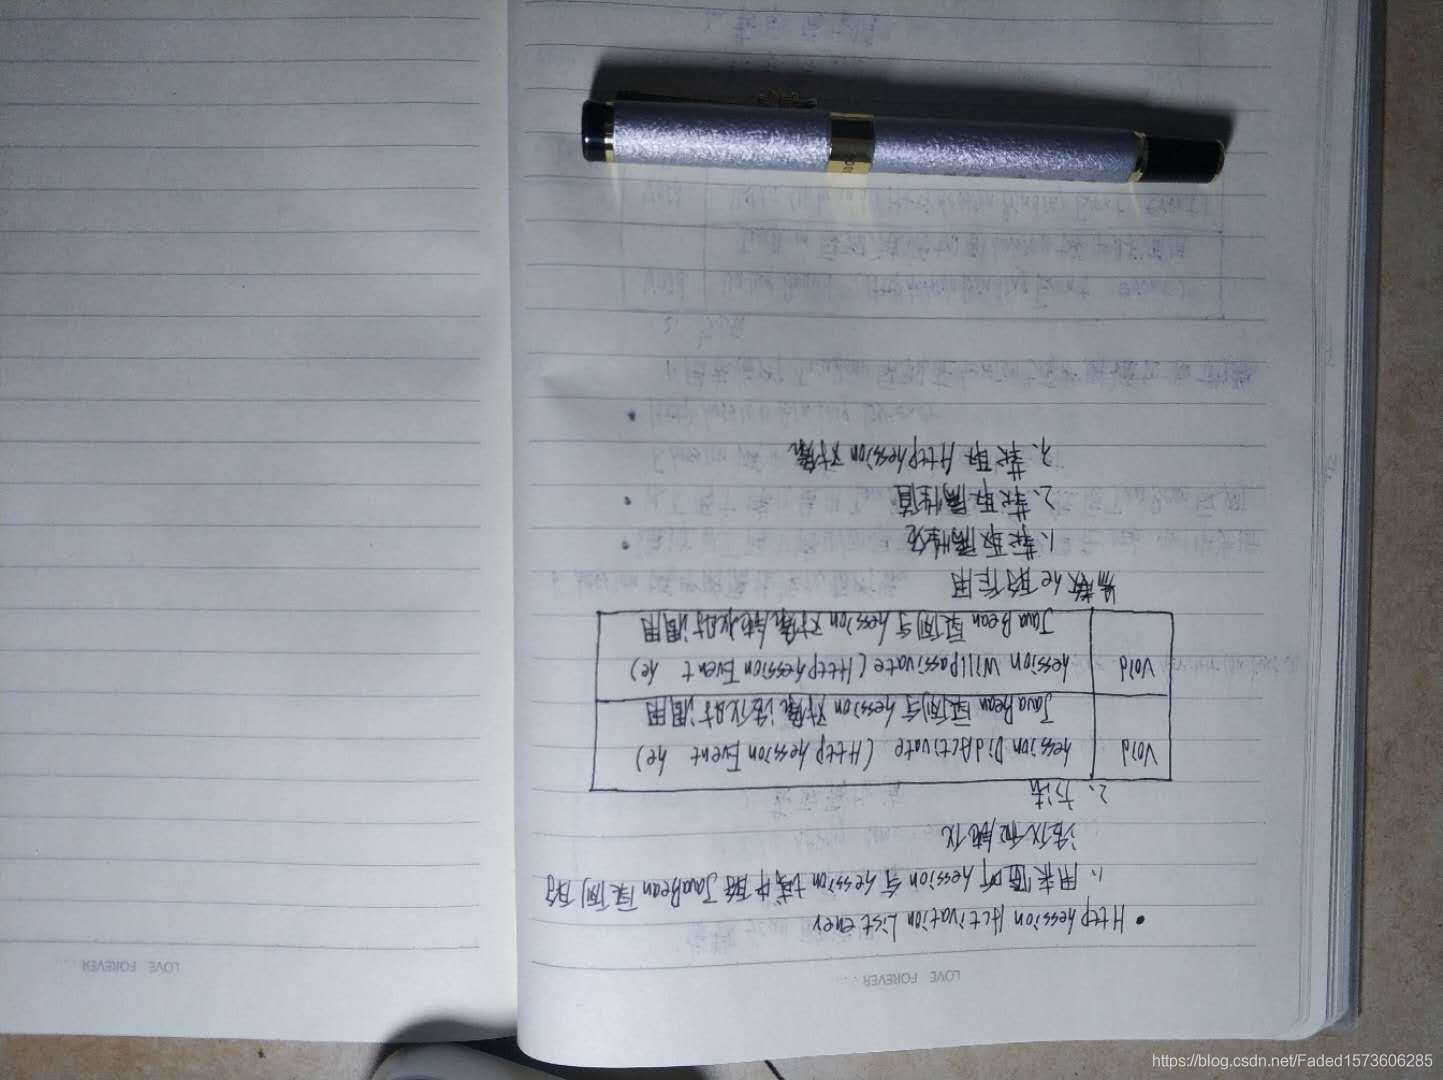 LOVE FOREVER...
LOVE FOREVER...
• HttpSession Activation Listener
1. 用来监听session与session域中的JavaBean实例的
活化和钝化
2、方法
Void session DidActivate (HttpSession Event se)
JavaBean实例与session对象活化时调用
Void session WillPassivate (HttpSession Event se)
JavaBean实例与session对象钝化时调用
参数se的作用
1、获取属性名
2、获取属性值
3、获取HttpSession对象
https://blog.csdn.net/Faded1573606285